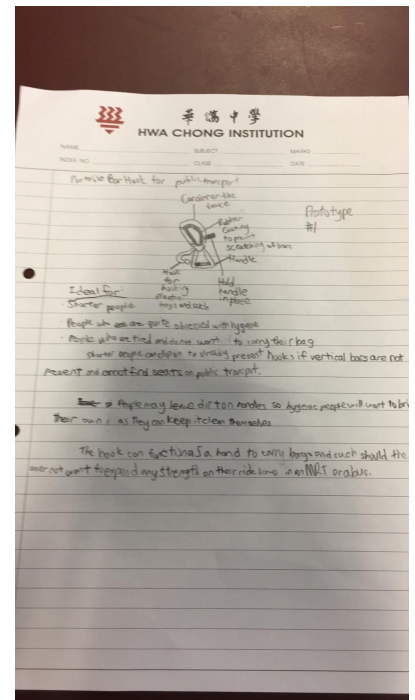 華中學
HWA CHONG INSTITUTION
NAME
SUBJECT
MARKS
INDEX NO.
CLASS
DATE
Bar Hook for public transport
Carabiner-like
device
Prototype
#1
Rubber
Coating
to prevent
scratching of bars
Handle
Hook
for
plastic
bags and such
Hold
handle
in place
Ideal for:
· Shorter people
People who are quite obsessed with hygiene
· People who are tired and do not want to carry their bag
shorter people can clip on to already present hooks if vertical bars are not
present and cannot find seats on public transport.
People may leave dirt on handles so hygienic people will want to bri
their own as they can keep it clean themselves
The hook can function as a hand to carry bags and such should the
user not want to expend any strength on their ride home in an MRT or a bus.